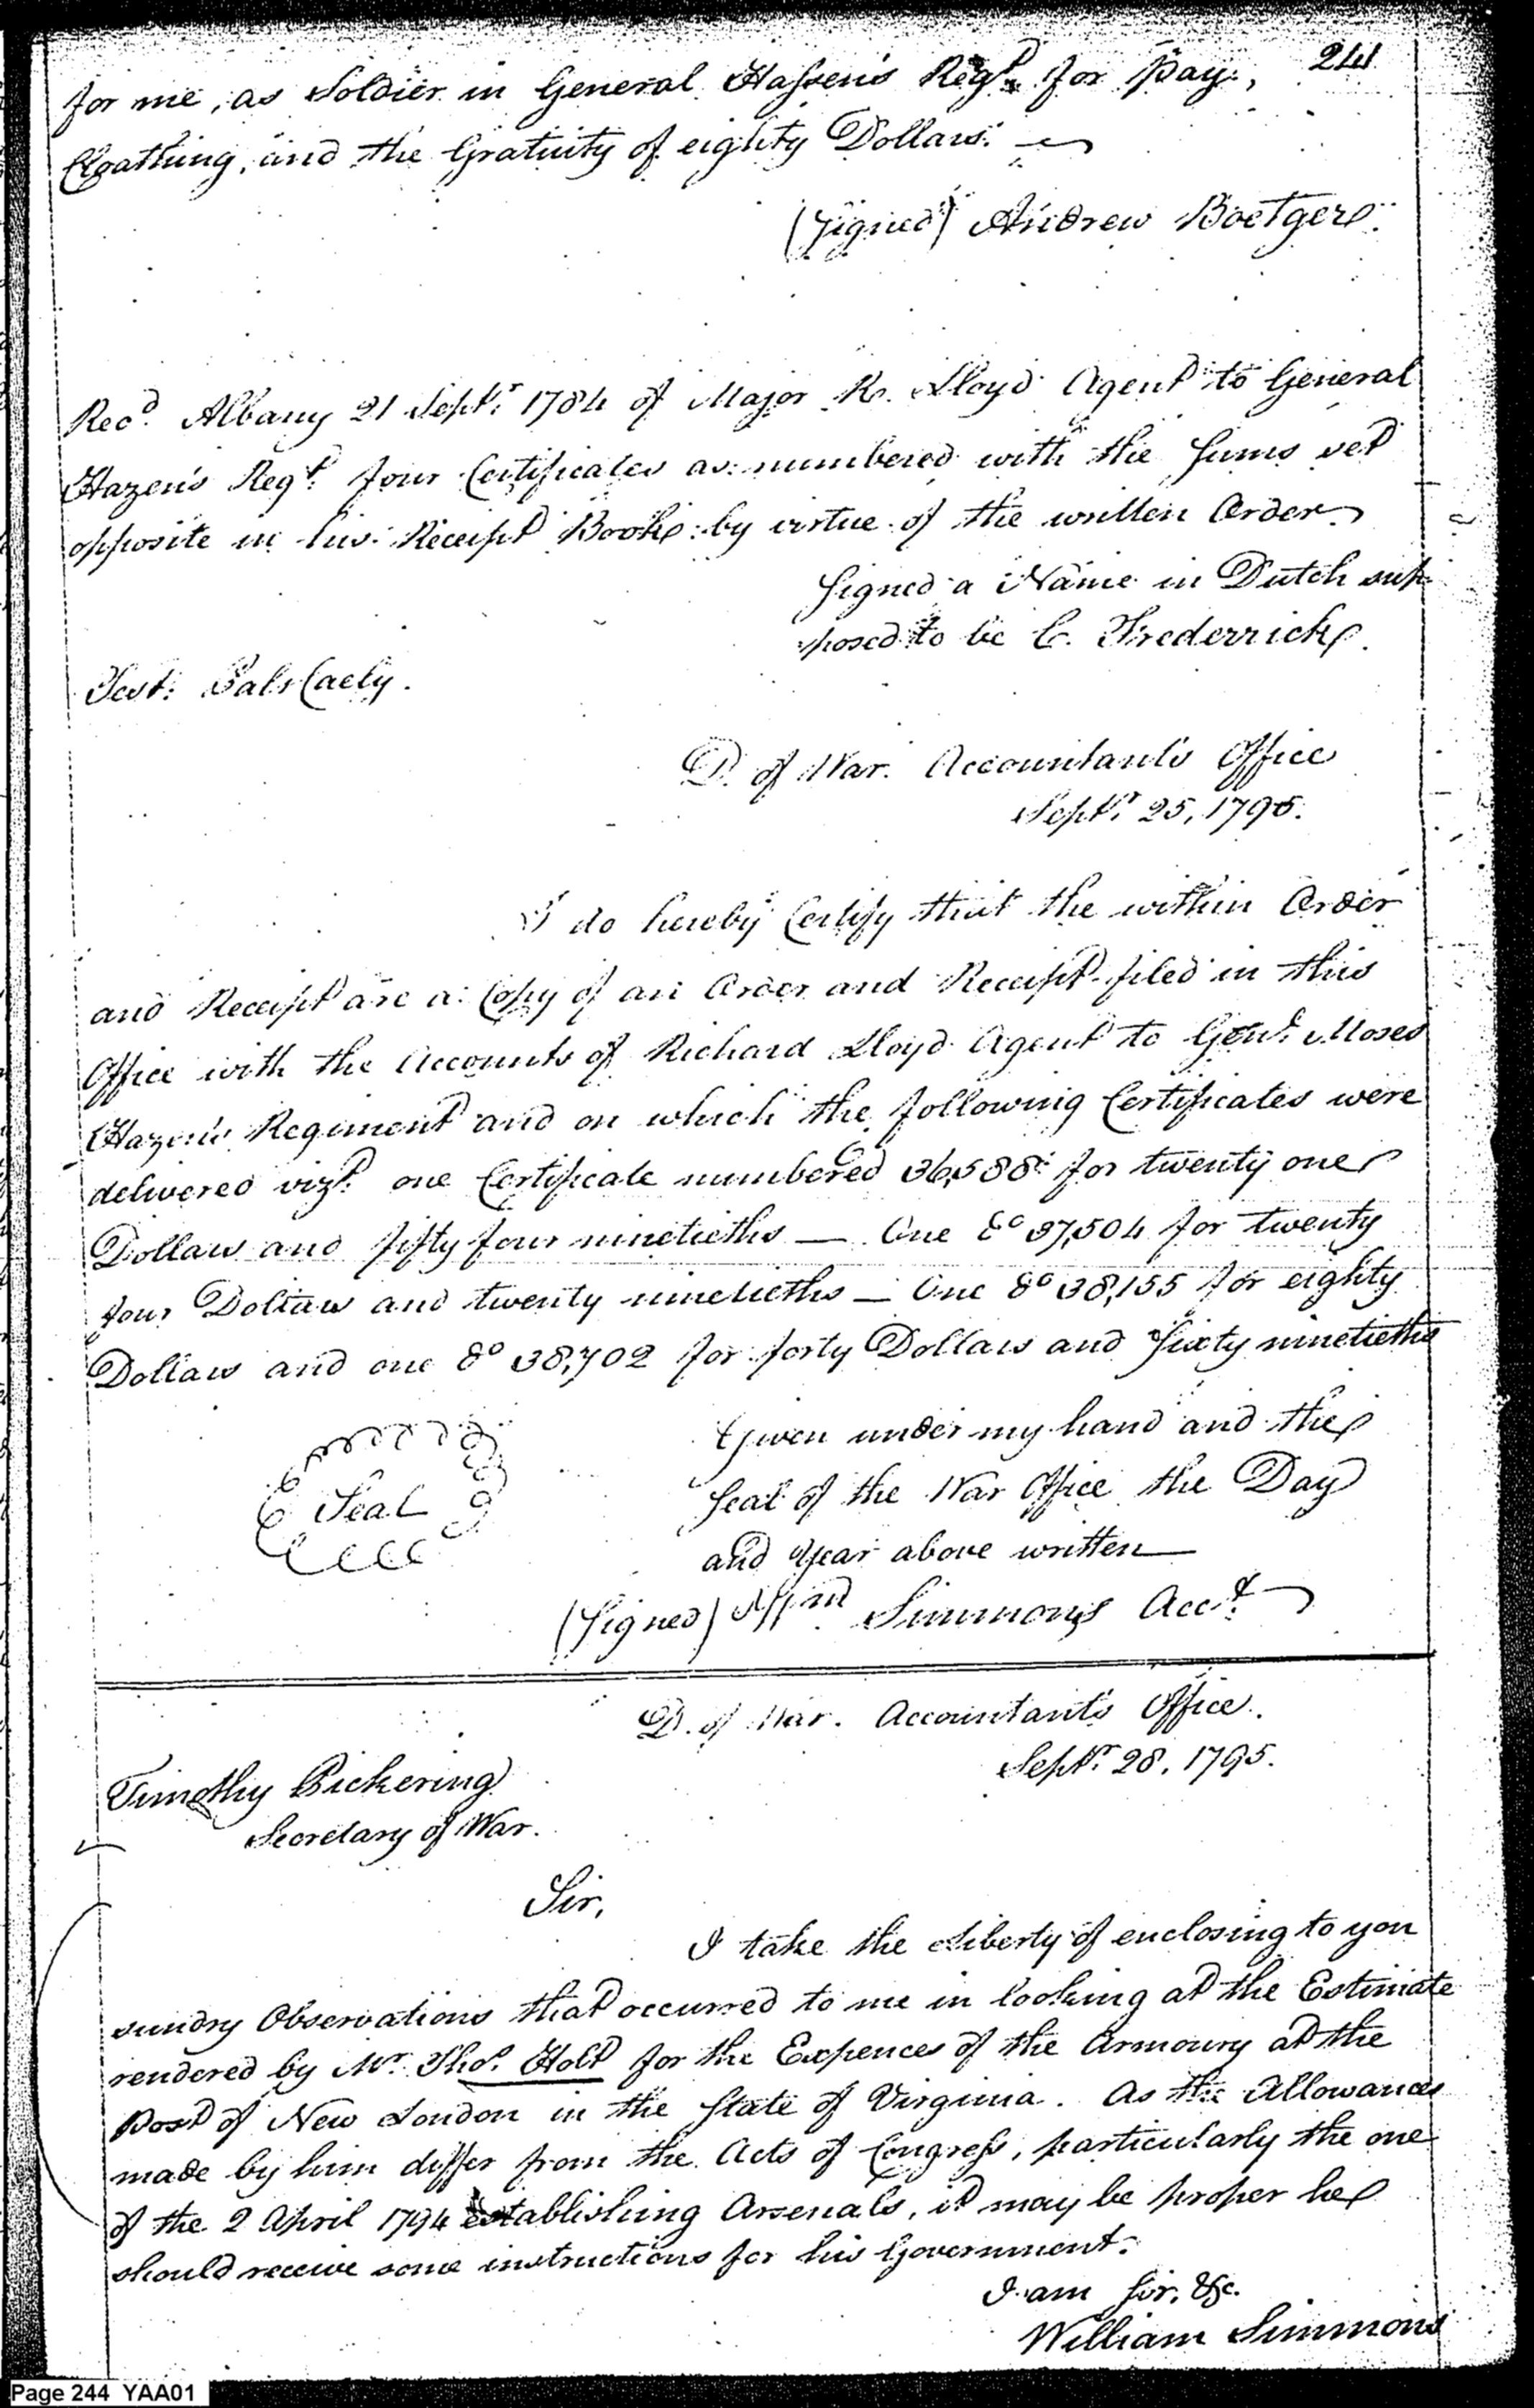 241
for me, as Soldier in General Hassen's Regt. for Pay,
Cloathing, and the Gratuity of eighty Dollars.
(Signed) Andrew Boetger
Recd. Albany 21 Septr. 1784 of Major R. Lloyd Agent to General
Hazen's Regt. four Certificates as numbered with the Sums set
opposite in his Receipt Book by virtue of the written Order.
Signed a Name in Dutch sup
posed to be C. Frederrick
Test:
D. of War. Accountant's Office
Septr. 25, 1795.
I do hereby Certify that the within Order
and Receipt are a Copy of an Order and Receipt filed in this
Office with the Accounts of Richard Lloyd Agent to Genl. Moses
Hazen's Regiment and on which the following Certificates were
delivered vizt. one Certificate numbered 36,588 for twenty one
Dollars and fifty four ninetieths — One do 37,504 for twenty
four Dollars and twenty ninetieths — One do 38,155 for eighty
Dollars and one do 38,702 for forty Dollars and Sixty ninetieths
Given under my hand and the
Seal
Seal of the War Office the Day
and Year above written —
(Signed) Wm. Simmons Acct.
D. of War. Accountant's Office.
Septr. 28, 1795.
Timothy Pickering
Secretary of War.
Sir,
I take the Liberty of enclosing to you
sundry Observations that occurred to me in looking at the Estimate
rendered by Mr. Thos. Holt for the Expences of the Armoury at the
Post of New London in the State of Virginia. As the Allowances
made by him differ from the Acts of Congress, particularly the one
of the 2 April 1794 establishing Arsenals, it may be proper he
should receive some instructions for his Government.
I am Sir, &c.
William Simmons
Page 244 YAA01